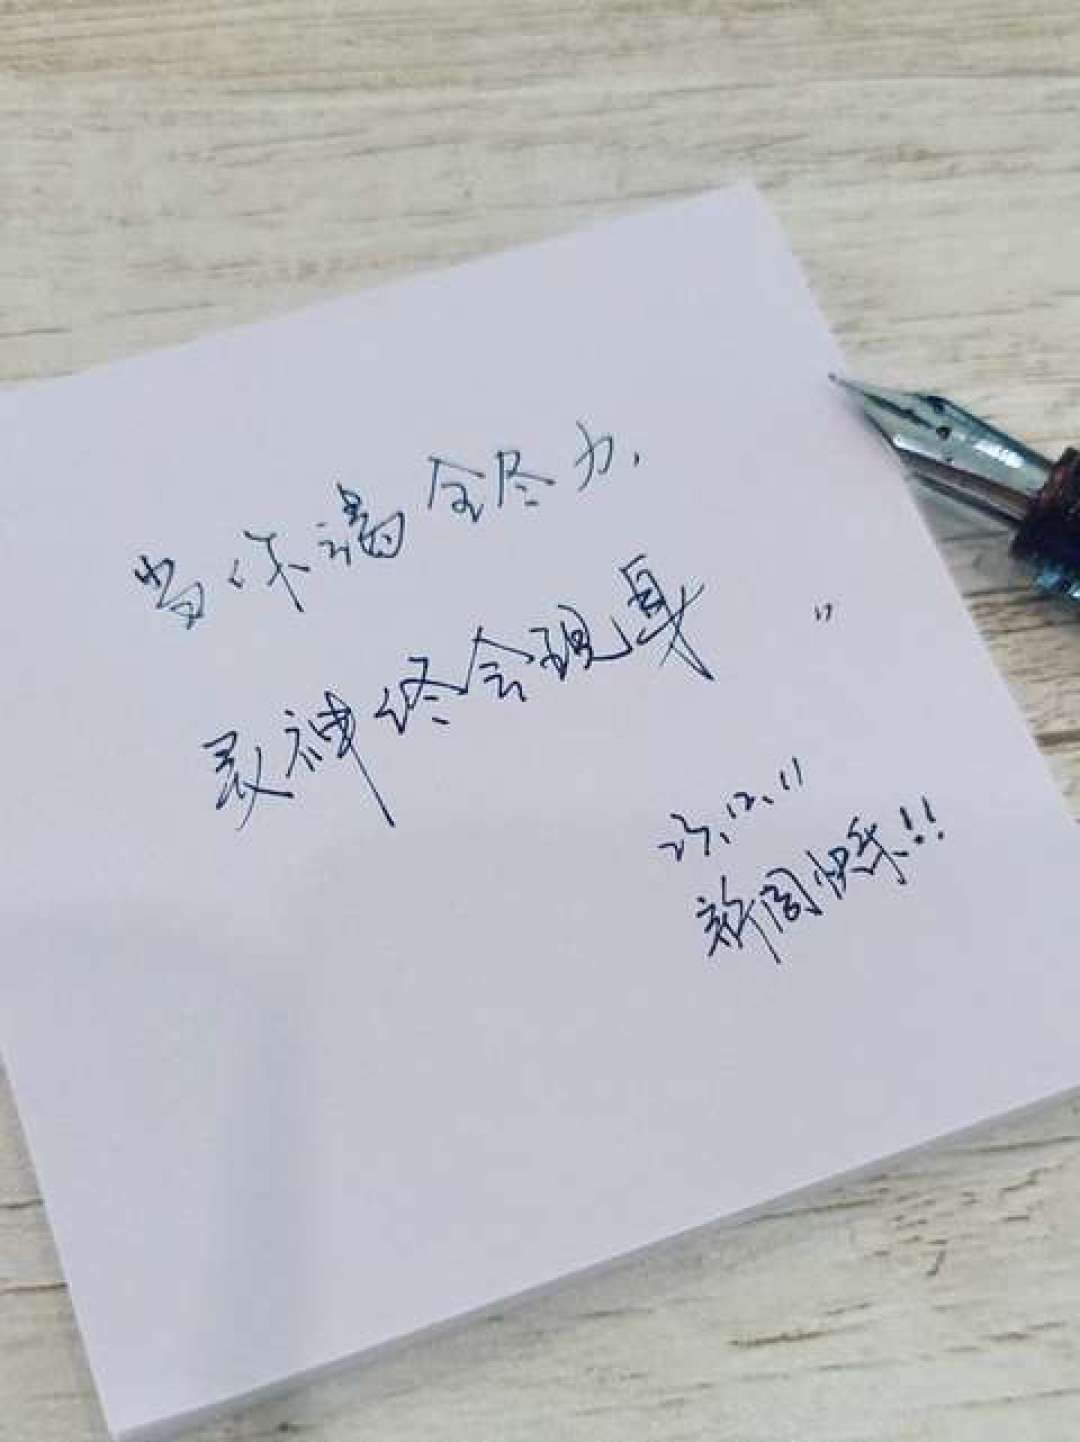 当你竭尽全力,
灵神终会现身"
23.12.11
新周快乐!!